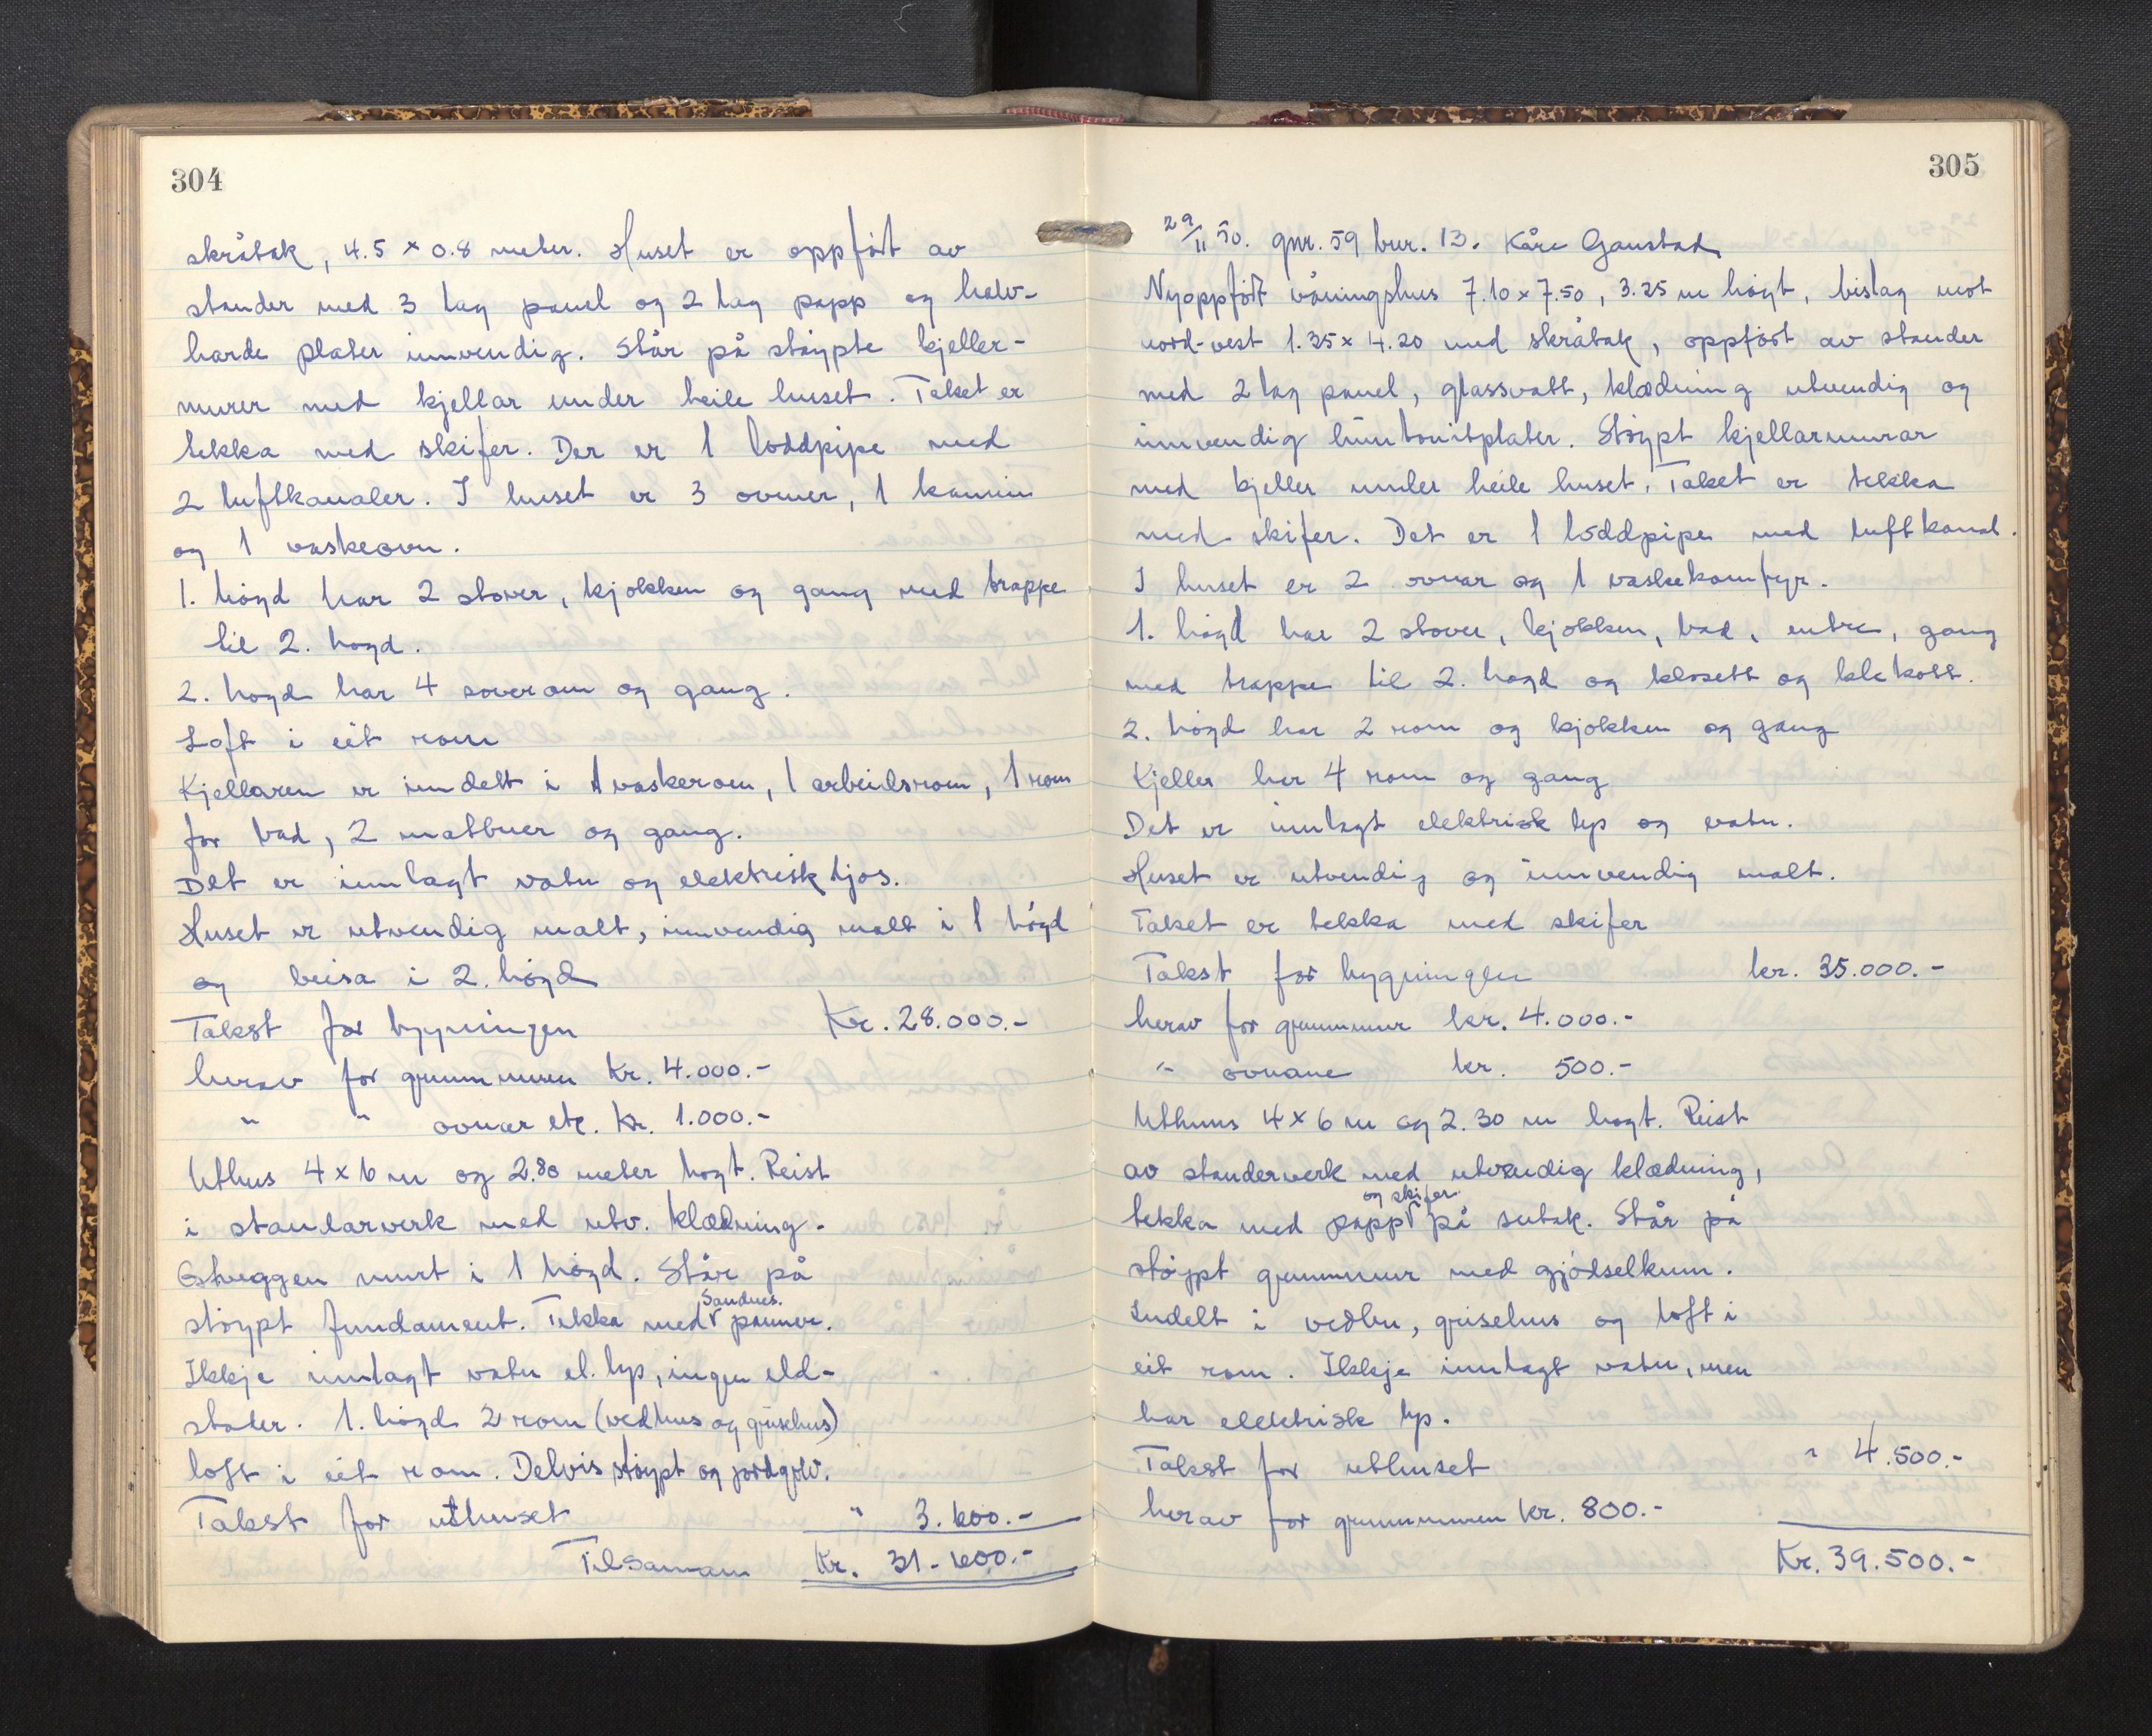 304
skråtak, 4.5 x 0.8 meter. Huset er oppført av
stander med 3 lag panel og 2 lag papp og halv-
harde plater innvendig. Står på støypte kjeller-
murer med kjellar under heile huset. Taket er
tekka med skifer. Der er 1 loddpipe med
2 luftkanaler. I huset er 3 ovner, 1 kamin
og 1 vaskeovn.
1. høgd har 2 stover, kjøkken og gang med trappe
til 2. høgd.
2. høgd har 4 soverom og gang.
Loft i eit rom
Kjellaren er inndelt i 1 vaskerom, 1 arbeidsrom, 1 rom
for bad, 2 matbuer og gang.
Det er innlagt vatn og elektrisk ljos.
Huset er utvendig malt, innvendig malt i 1 høgd
og beisa i 2. høgd
Takst for bygningen Kr. 28.000.-
herav for grunnmuren Kr. 4.000.-
" " ovnar etc. Kr. 1.000.-
Uthus 4 x 6 m og 2.80 meter høgt. Reist
i standarverk med utv. klædning.
Østveggen murt i 1 høgd. Står på
støypt fundament. Tekka med Sandnes. panner.
Ikkje innlagt vatn el. lys, ingen eld-
stader. 1. høgd 2 rom (vedhus og grisehus)
loft i eit rom. Delvis støypt og jordgolv.
Takst for uthuset " 3.600.-
Tilsamam Kr. 31.600.-
305
29/11 50. gnr. 59 bnr. 13. Kåre Gaustad
Nyoppført våningshus 7.10 x 7.50, 3.25 m høgt, bislag mot
nord-vest 1.35 x 4.20 med skråtak, oppført av stander
med 2 lag panel, glassvatt, klædning utvendig og
innvendig huntonitplater. Støypt kjellarmurar
med kjeller under heile huset. Taket er tekka
med skifer. Det er 1 loddpipe med luftkanal.
I huset er 2 ovnar og 1 vaskekomfyr.
1. høgd har 2 stover, kjøkken, bad, entre, gang
med trappe til 2. høgd og klosett og klekott.
2. høgd har 2 rom og kjøkken og gang
Kjeller her 4 rom og gang
Det er innlagt elektrisk lys og vatn.
Huset er utvendig og innvendig malt.
Taket er tekka med skifer
Takst for bygningen kr. 35.000.-
herav for grunnmur kr. 4.000.-
" ovnane kr. 500.-
Uthuus 4 x 6 m og 2.30 m høgt. Reist
av standerverk med utvendig klædning,
tekka med papp og skifer. på sutak. Står på
støypt grunnmur med gjødselkum.
Indelt i vedbu, grisehus og loft i
eit rom. Ikkje innlagt vatn, men
har elektrisk lys.
Takst for uthuset " 4.500.-
herav for grunnmuren kr. 800.-
Kr. 39.500.-